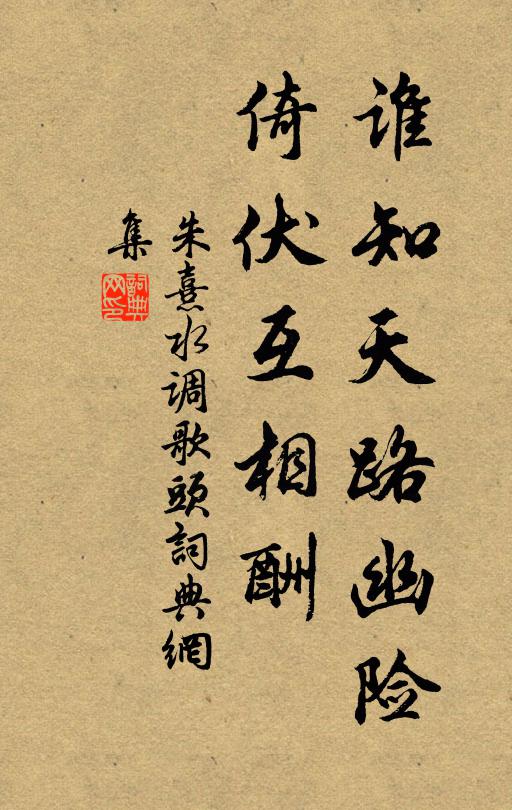 谁知天路幽险
倚伏互相酬
朱熹水调歌頭詞典網
集
詞典
网印